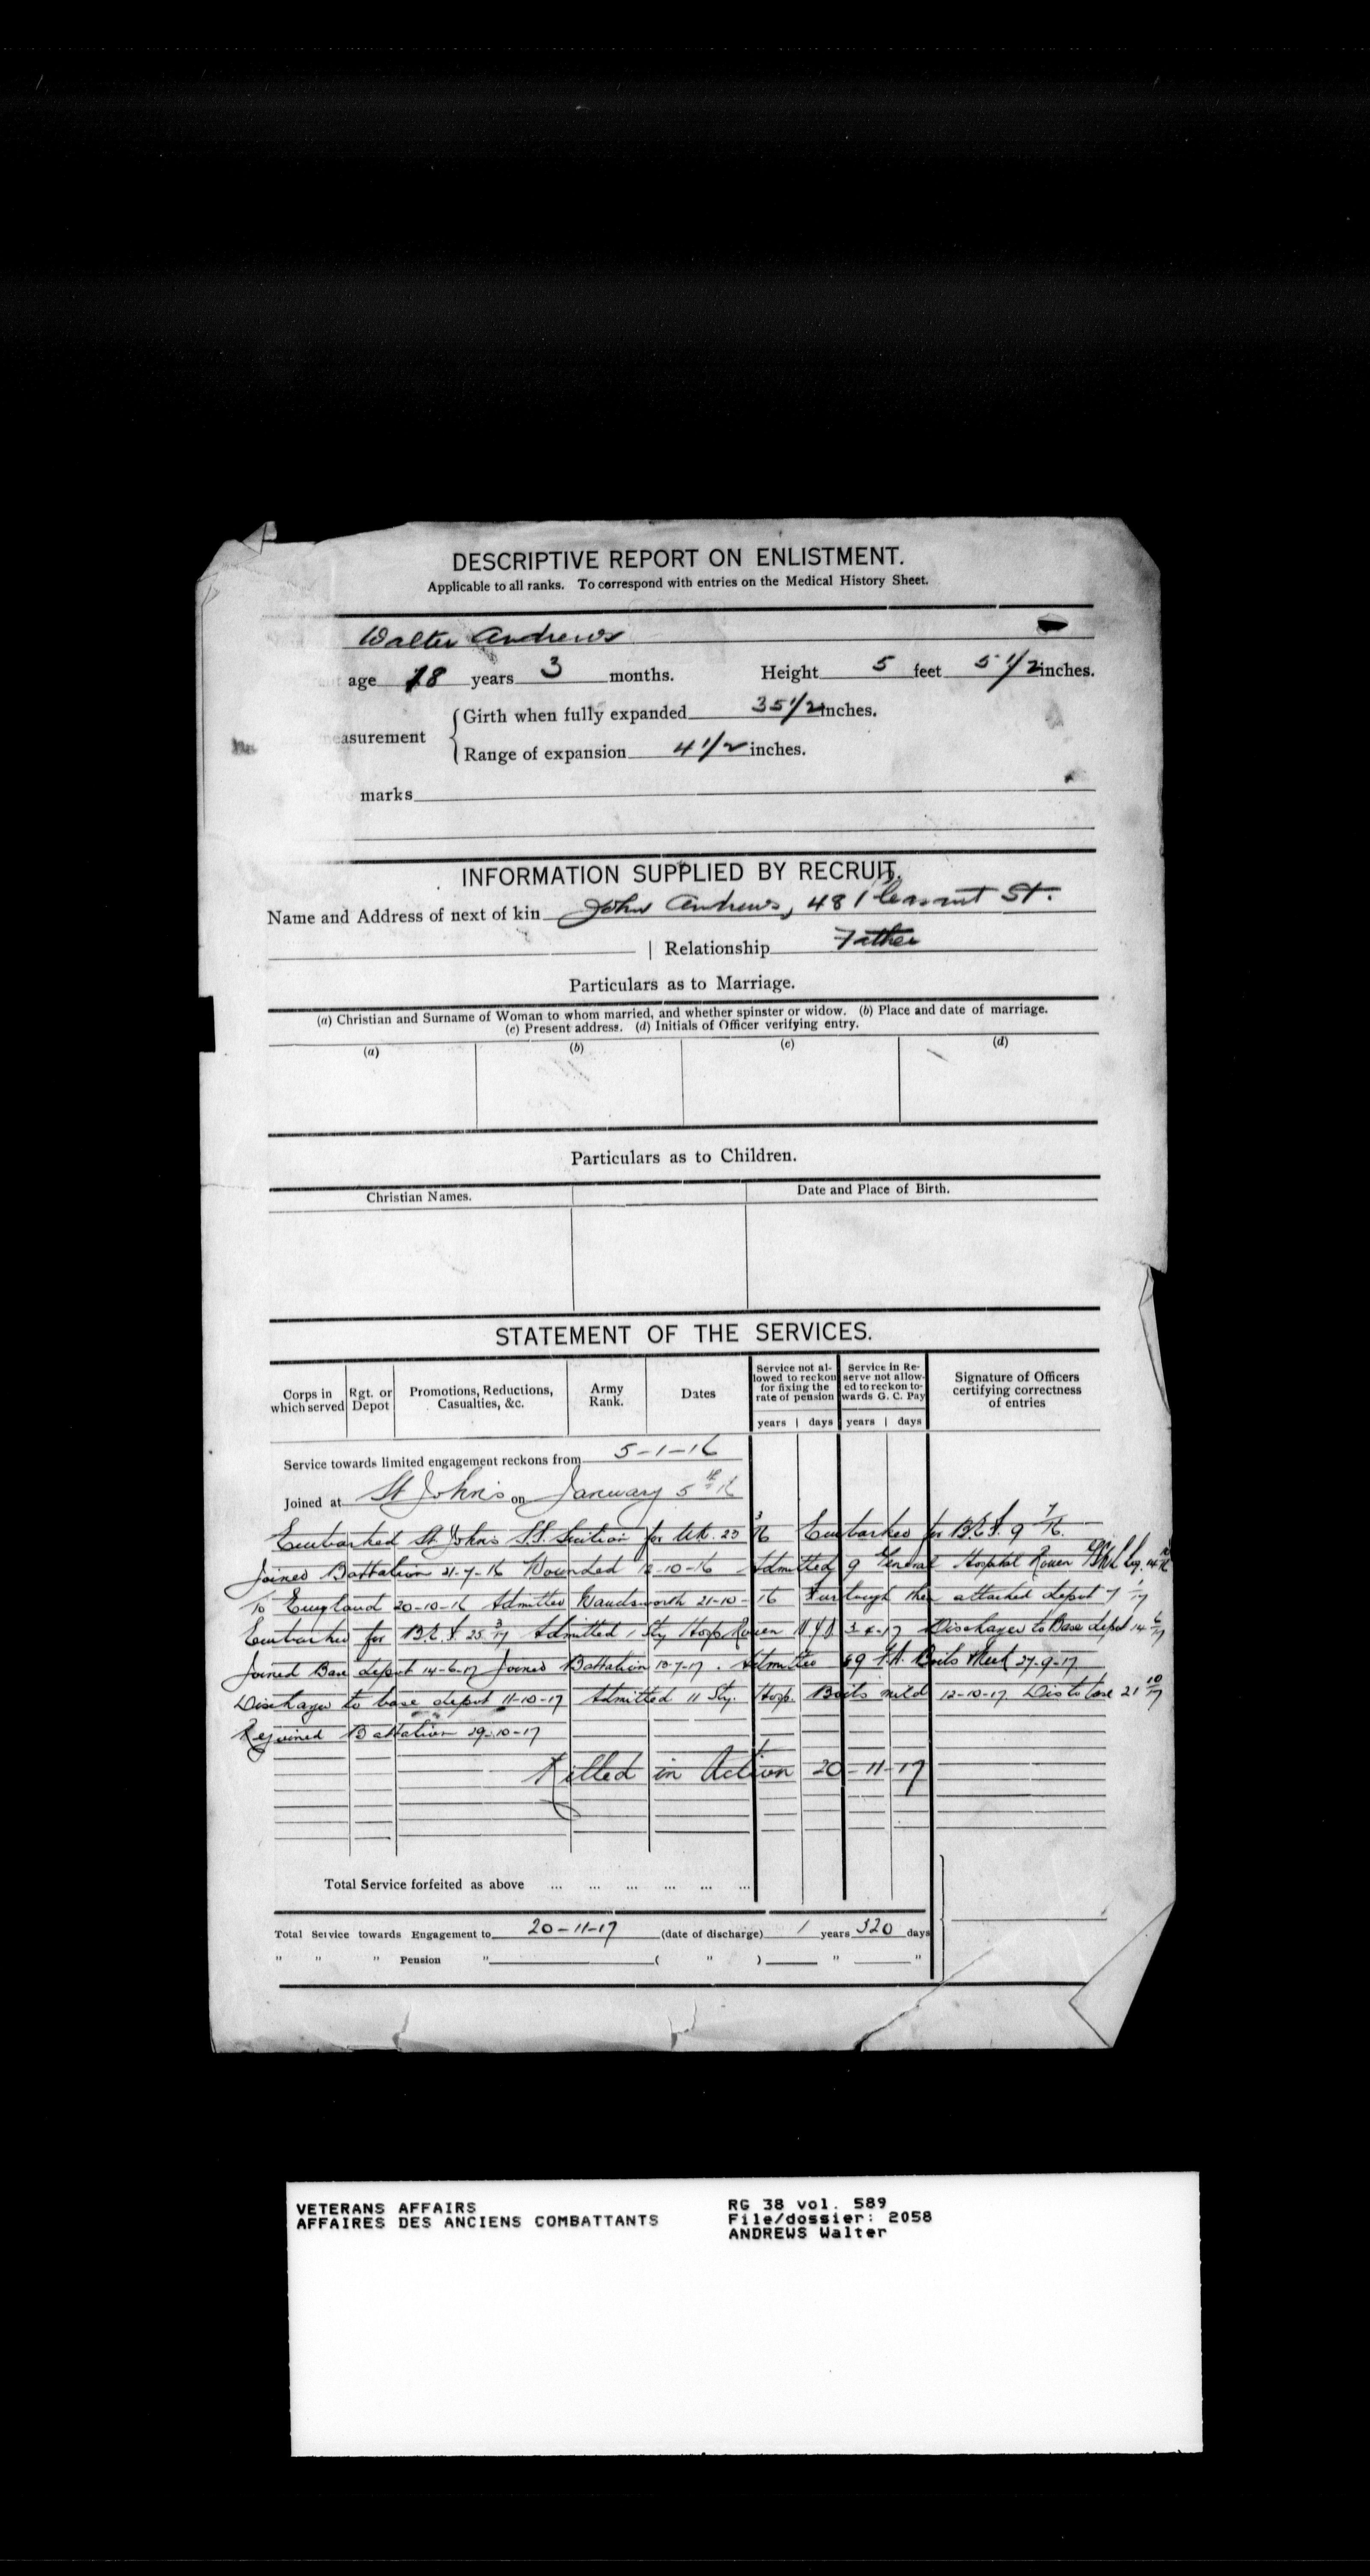 DESCRIPTIVE REPORT ON ENLISTMENT.
Applicable to all ranks. To correspond with entries on the Medical History Sheet.
Walter Andrews
age 18 years 3 months. Height 5 feet 5 1/2 inches.
Girth when fully expanded 35 1/2 inches.
measurement
Range of expansion 4 1/2 inches.
marks
INFORMATION SUPPLIED BY RECRUIT.
Name and Address of next of kin John Andrews, 48 Pleasant St.
| Relationship Father
Particulars as to Marriage.
(a) Christian and Surname of Woman to whom married, and whether spinster or widow. (b) Place and date of marriage.
(c) Present address. (d) Initials of Officer verifying entry.
(a) (b) (c) (d)
Particulars as to Children.
Christian Names. Date and Place of Birth.
STATEMENT OF THE SERVICES.
Corps in which served Rgt. or Depot Promotions, Reductions, Casualties, &c. Army Rank. Dates Service not allowed to reckon for fixing the rate of pension Service in Reserve not allowed to reckon towards G. C. Pay Signature of Officers certifying correctness of entries
years | days years | days
Service towards limited engagement reckons from 5-1-16
Joined at St John's on January 5th 16
Embarked St John's S.S. Sicilian for UK. 23 3/16 Embarked for B.E.F. 9 7/16.
Joined Battalion 21-7-16 Wounded 12-10-16 Admitted 9 General Hospital Rouen leg. 14 10/16
To England 20-10-16 Admitted Wandsworth 21-10-16 Furlough then attached depot 7 1/17
Embarked for B.E.F. 25 3/17 Admitted 1 Sty Hosp Rouen Discharged to Base depot 14 6/17
Joined Base depot 14-6-17 Joined Battalion 10-7-17. Admitted 69 F.A. Boils 27-9-17
Discharged to base depot 11-10-17 Admitted 11 Sty. Hosp. Boils mild 12-10-17. Dis to base 21 10/17
Rejoined Battalion 29-10-17
Killed in Action 20-11-17
Total Service forfeited as above ... ... ... ... ... ...
Total Service towards Engagement to 20-11-17 (date of discharge) 1 years 320 days
" " " Pension " ( " ) " "
VETERANS AFFAIRS
AFFAIRES DES ANCIENS COMBATTANTS
RG 38 vol. 589
File/dossier: 2058
ANDREWS Walter